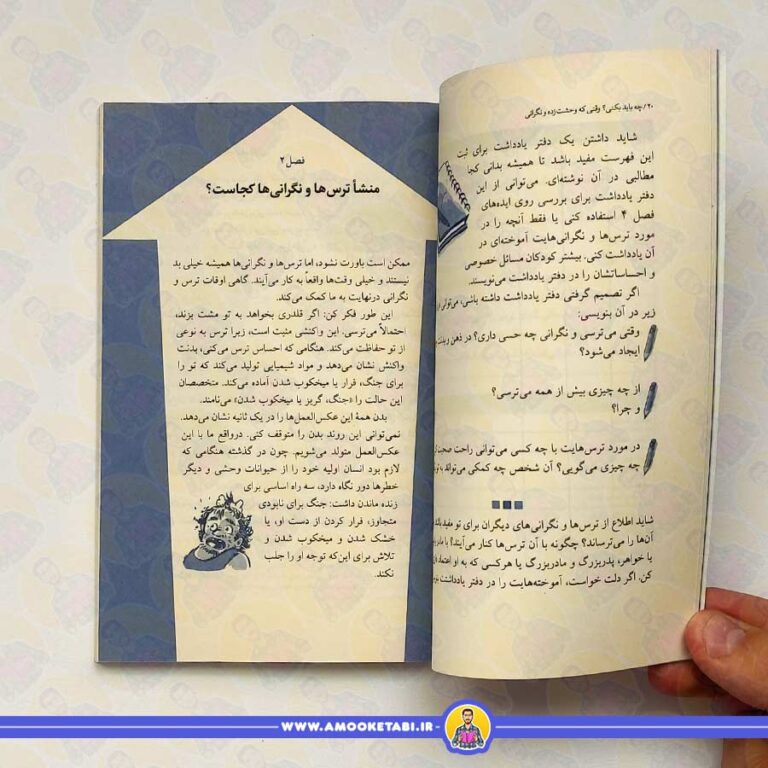 ۲۰/ چه باید بکنی؟ وقتی که وحشت‌زده و نگرانی
شاید داشتن یک دفتر یادداشت برای ثبت
این فهرست مفید باشد تا همیشه بدانی کجا
مطالبی در آن نوشته‌ای. می‌توانی از این
دفتر یادداشت برای بررسی روی ایده‌های
فصل ۴ استفاده کنی یا فقط آنچه را در
مورد ترس‌ها و نگرانی‌هایت آموخته‌ای در
آن یادداشت کنی. بیشتر کودکان مسائل خصوصی
و احساساتشان را در دفتر یادداشت می‌نویسند.
اگر تصمیم گرفتی دفتر یادداشت داشته باشی، می‌توانی
زیر در آن بنویسی:
وقتی می‌ترسی و نگرانی چه حسی داری؟ در ذهن
ایجاد می‌شود؟
از چه چیزی بیش از همه می‌ترسی؟
و چرا؟
در مورد ترس‌هایت با چه کسی می‌توانی راحت
چه چیزی می‌گویی؟ آن شخص چه کمکی می‌تواند
شاید اطلاع از ترس‌ها و نگرانی‌های دیگران برای تو مفید
آن‌ها را می‌ترساند؟ چگونه با آن ترس‌ها کنار می‌آیند؟ با
یا خواهر، پدربزرگ و مادربزرگ یا هرکسی که به او اعتماد
کن. اگر دلت خواست، آموخته‌هایت را در دفتر یادداشت
فصل ۲
منشأ ترس‌ها و نگرانی‌ها کجاست؟
ممکن است باورت نشود، اما ترس‌ها و نگرانی‌ها همیشه خیلی بد
نیستند و خیلی وقت‌ها واقعاً به کار می‌آیند. گاهی اوقات ترس و
نگرانی درنهایت به ما کمک می‌کند.
این طور فکر کن: اگر قلدری بخواهد به تو مشت بزند،
احتمالاً می‌ترسی. این واکنشی مثبت است، زیرا ترس به نوعی
از تو حفاظت می‌کند. هنگامی که احساس ترس می‌کنی، بدنت
واکنش نشان می‌دهد و مواد شیمیایی تولید می‌کند که تو را
برای جنگ، فرار یا میخکوب شدن آماده می‌کند. متخصصان
این حالت را «جنگ، گریز یا میخکوب شدن» می‌نامند.
بدن همهٔ این عکس‌العمل‌ها را در یک ثانیه نشان می‌دهد.
نمی‌توانی این روند بدن را متوقف کنی. درواقع ما با این
عکس‌العمل متولد می‌شویم. چون در گذشته هنگامی که
لازم بود انسان اولیه خود را از حیوانات وحشی و دیگر
خطرها دور نگاه دارد، سه راه اساسی برای
زنده ماندن داشت: جنگ برای نابودی
متجاوز، فرار کردن از دست او، یا
خشک شدن و میخکوب شدن و
تلاش برای این‌که توجه او را جلب
نکند.
WWW.AMOOKETABI.IR